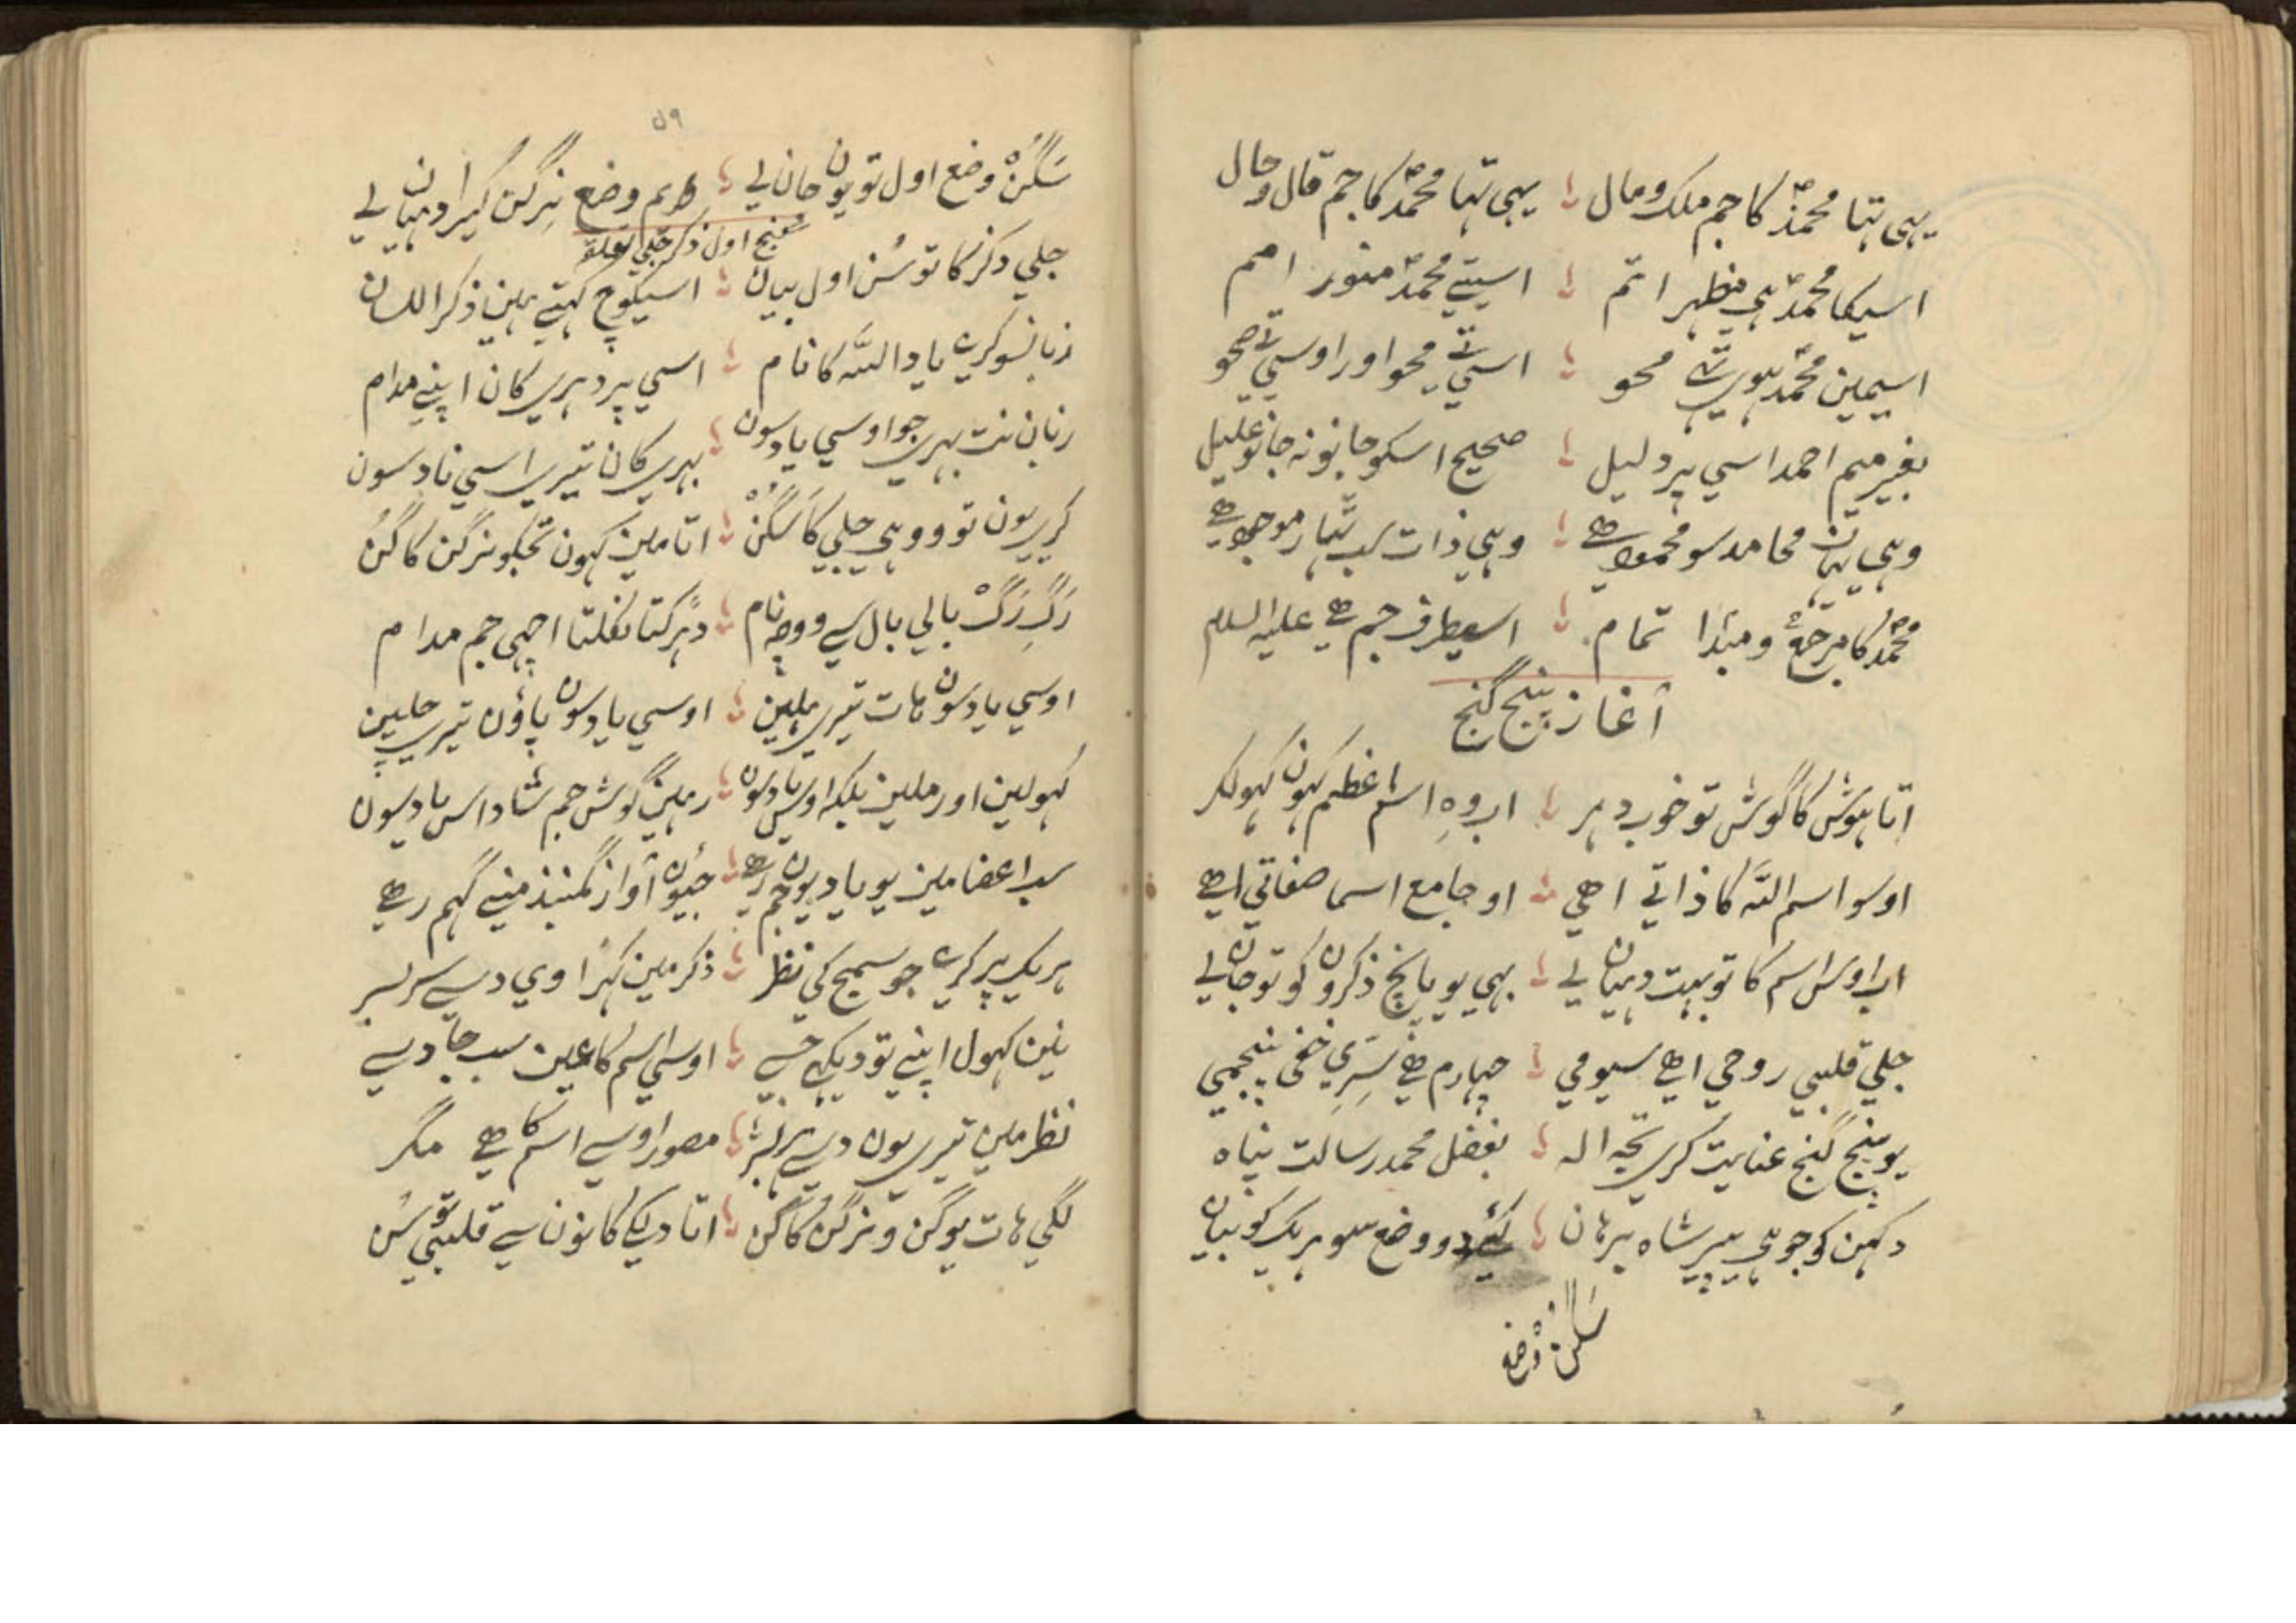 یہی تہا محمدؐ کا جم ملک و مال ؛ یہی تہا محمدؐ کا جم قال و حال
اسیکا محمدؐ ہی مظہر اتم ؛ اسیتے محمدؐ منور امم
اسیمین محمدؐ ہوی تہے محو ؛ اسی تے محو اور اوسی تے صحو
بغیر میم احمد اسی پر دلیل ؛ صحیح اسکو جانو نہ جانو علیل
وہی تہان محامد سو محمود ہے ؛ وہی ذات سب تہار موجود ہے
محمدؐ کا مرجع و مبتدا تمام ؛ اسیطرف جم ہے علیہ السلام
آغاز پنج گنج
اتا ہوش کا گوش تو خوب دہر ؛ اب وہ اسم اعظم کہون کہولکر
اوسو اسم اللہ کا ذاتے اھی ؛ او جامع اسما صفاتی اہے
اب اوس اسم کا تو بہت دہیان لے ؛ بہی یو پانچ ذکرون کو تو جان لے
جلی قلبی روحی اہے سیومی ؛ چہارم ہے سری خفی پنجمی
یو پنج گنج عنایت کری تجہ الہ ؛ بفضل محمد رسالت پناہ
دکہن کو جو ہی پیر شاہ برہان ؛ کئے دو وضع سو ہریک کو بیان
سَگُنْ وضع
۵۹
سَگُنْ وضع اول تو یون جان لے ؛ دویم وضع نِرگُن کیرا دہیان لے
گنج اول ذکر جلی
جلی ذکر کا تو سُن اول بیان ؛ اسیکوچ کہتے ہین ذکر اللسان
زبانسو کرے یاد اللہ کا نام ؛ اسی پر دہری کان اپنے مدام
زبان نت پہری جو اوسی یاد سون ؛ بہری کان تیری اسی ناد سون
کریں یون تو و وہی جلی کا سَگُنْ ؛ اتا مین کہون تجکو نرگن کا گُن
رَگِ رَگْ بالی بال سے ووچہ نام ؛ دہڑکتا نکلتا اچہی جم مدام
اوسی یاد سون ہات تیری ہلین ؛ اوسی یاد سون پاؤن تیری چلین
کہولین اور ملین پلک اوس یاد سون ؛ رہین گوش جم شاد اس یاد سون
سب اعضا مین یو یاد یون جم رہے ؛ جیون آواز گنبذ منے گہم رہے
ہریک پر کرے جو سمج کی نظر ؛ ذکر مین کہڑا وی دسے سربسر
نین کہول اپنے تو دیکہے جسے ؛ اوسی اسم کا عین سب جا دسے
نظر مین تیری یون دسے ہر بشر ؛ مصور اوسے اسم کا ہے مگر
لگی ہات یو گن و نرگن کا گن ؛ اتا دیکے کانون سے قلبی تو سُن